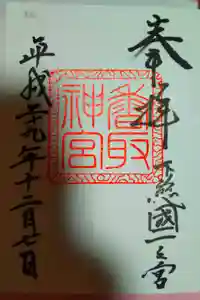 奉拝
下總國一之宮
香取
神宮
平成廿九年十二月七日